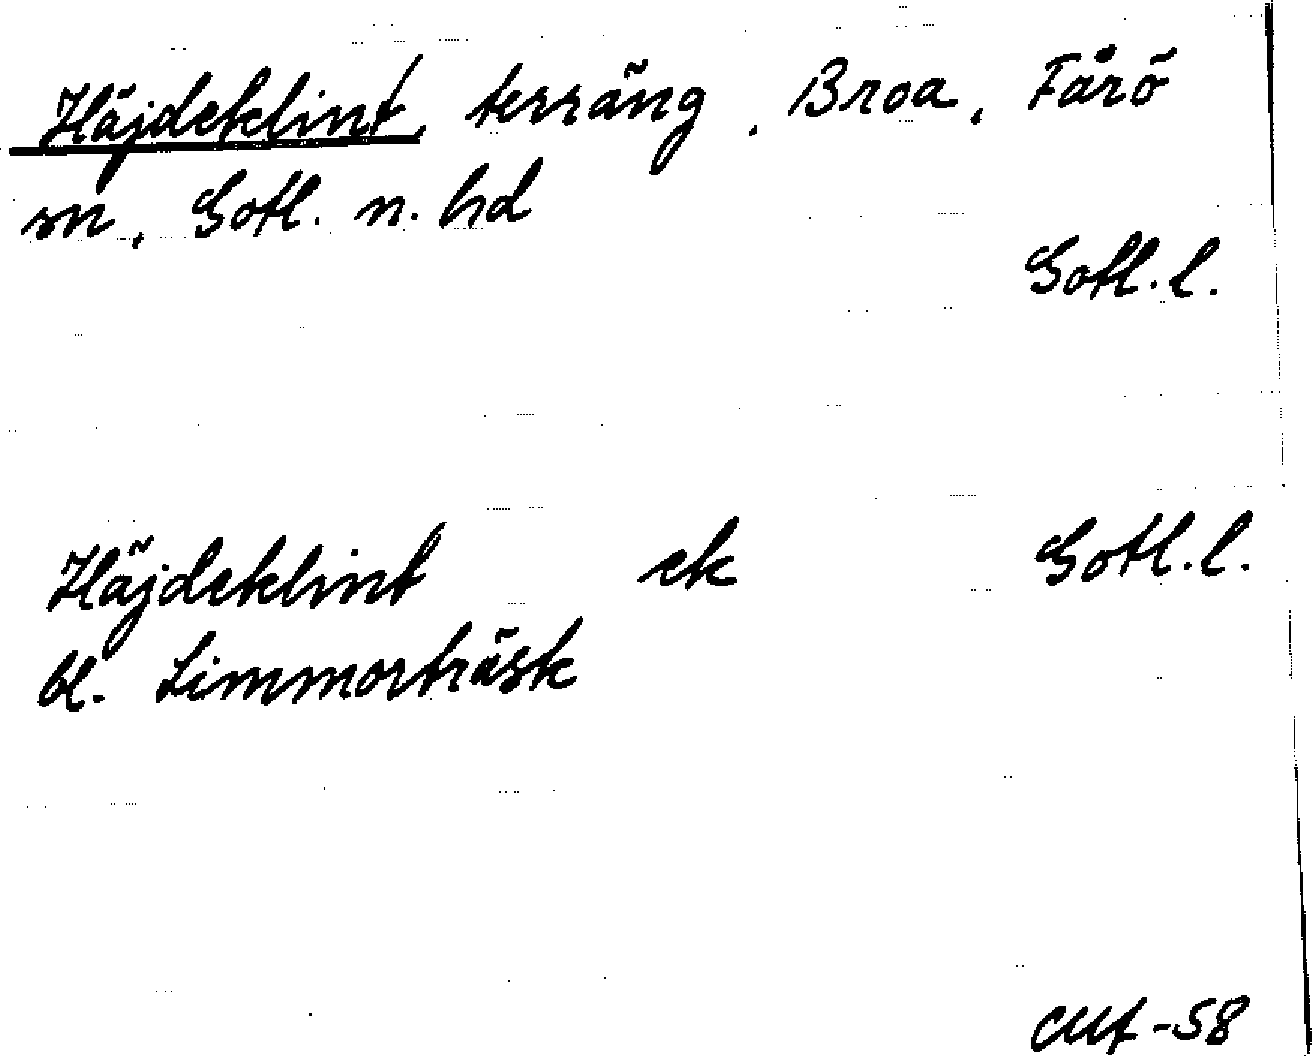 Häjdeklint, terräng, Broa, Fårö
sn, Gotl. n. hd
Gotl. l.
Häjdeklint ek Gotl. l.
bl. Limmorträsk
-58